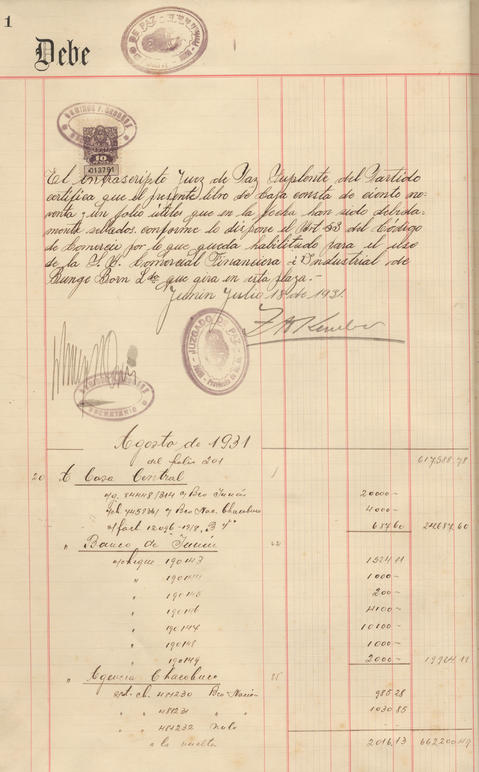 1
Debe
JUZGADO DE PAZ
DOMINGO F.
10
013751
El infrascripto Juez de Paz Suplente del Partido
certifica que el presente libro de Caja consta de ciento no-
venta y un folio útiles que en la fecha han sido debida-
mente sellados conforme lo dispone el Art 53 del Código
de Comercio por lo que queda habilitado para el uso
de la S. A. Comercial Financiera é Industrial de
Bunge Born Lda que gira en esta plaza.-
Junin Julio 18 de 1931.
JUZGADO DE PAZ
SECRETARIO
Agosto de 1931
del folio 201 617588.78
20 A Casa Central 1
Bco Junin 20000-
Bco Nac. Chacabuco 4000-
687.60 24687.60
" Banco de Junin
cheque 190143 1524.11
" 190144 1000-
" 190145 200-
" 190146 4100-
" 190147 10100-
" 190148 1000-
" 190149 2000- 19924.11
" Agencia Chacabuco
ch. 481230 Bco Nación 985.28
" " 481231 " " 1030.85
" " 481232 Nulo
a la vuelta 2016.13 662200.49